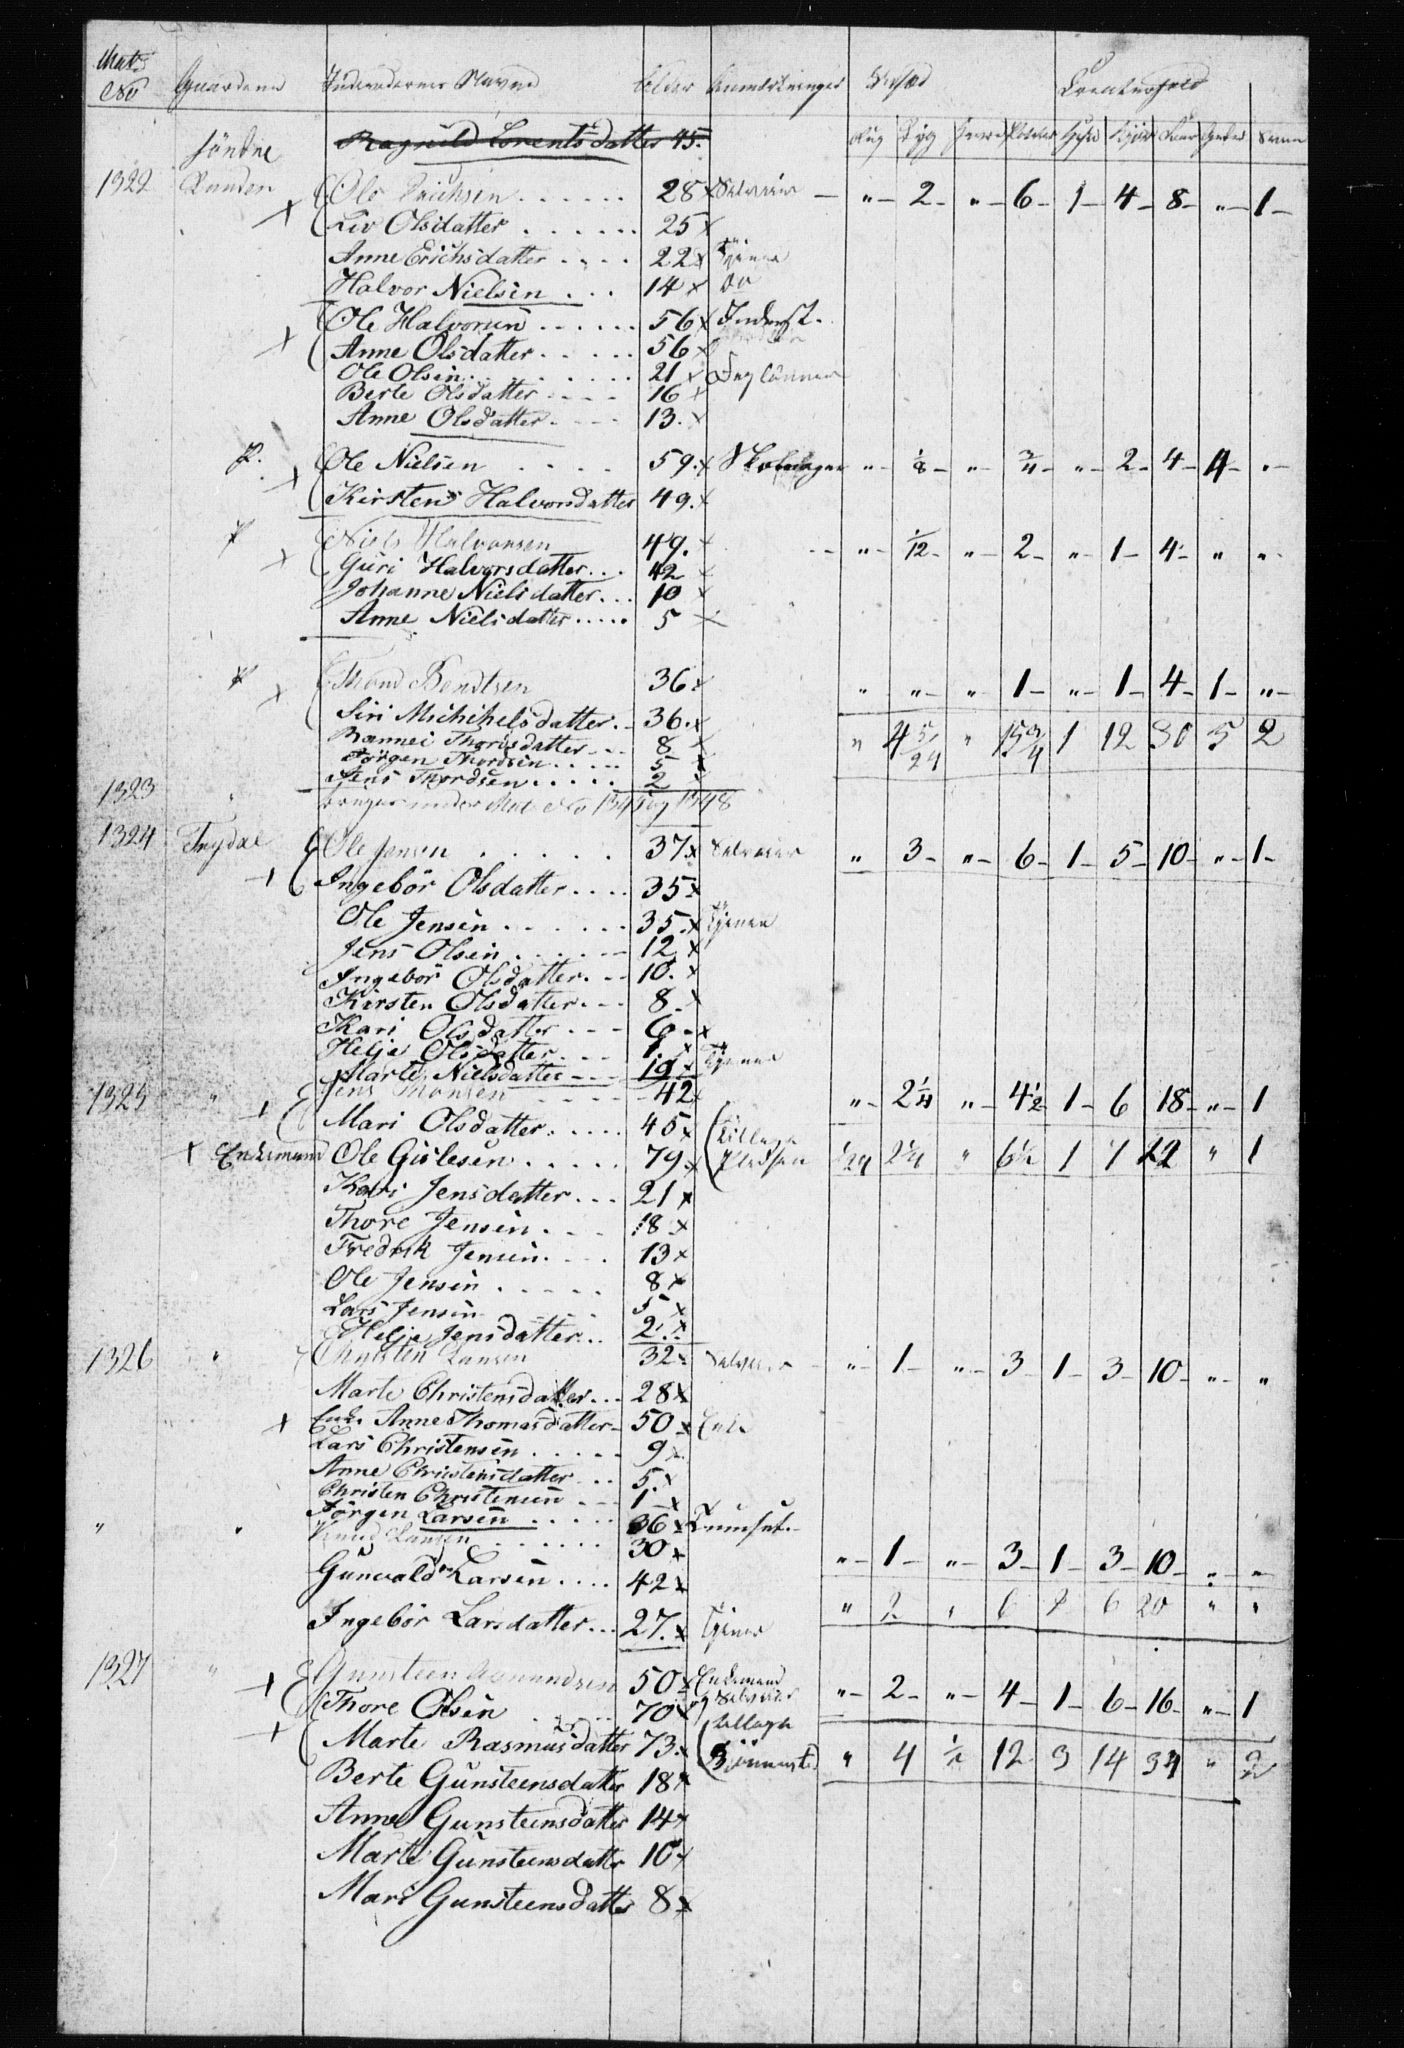 Mat: Gaardene Indvaanernes Navne Alder Anmærkninger Udsæd Creaturhold
No Rug Byg Havre Poteter Heste Kjør Faar Geder Sviin
Söndre Ragnild Lorentsdatter 45.
1322 Ole Erichsen 28 x Selveier " 2 " 6 1 4 8 " 1
Liv Olsdatter 25 x
Anne Erichsdatter 22 x Tjener
Halvor Nielsen 14 x do
Ole Halvorsen 56 x Inderst.
Anne Olsdatter 56 x
Ole Olsen 21 x Daglönner
Berte Olsdatter 16 x
Anne Olsdatter 13. x
P. Ole Nielsen 59. x " 1/8 " 3/4 " 2 4 4 "
Kirsten Halvorsdatter 49. x
P Niels Halvorsen 49. x " 1/12 " 2 " 1 4 " "
Guri Halvorsdatter 42 x
Johanne Nielsdatter 10 x
Anne Nielsdatter 5 x
P Thord Bendtsen 36 x " " " 1 " 1 4 1 "
Siri Michelsdatter 36. x " 4 5/24 " 15 3/4 1 12 30 5 2
Thordsdatter 8 x
Jörgen Thordsen 5 x
Jens Thordsen 2 x
1323 " under Mat No 1347 og 1348
1324 Frydal Ole Jensen 37 x Selveier " 3 " 6 1 5 10 " 1
Ingebör Olsdatter 35 x
Ole Jensen 35. x Tjener
Jens Olsen 12 x
Ingebör Olsdatter 10. x
Kirsten Olsdatter 8. x
Kari Olsdatter 6 x
Helje Olsdatter 1. x
Marte Nielsdatter 19 x Tjener
1325 " Jens Monsen 42 x " 2 1/4 " 4 1/2 1 6 18 " 1
Mari Olsdatter 45 x
Enkemand Ole Gislesen 79 x 1/24 2 1/4 " 6 1/2 1 7 22 " 1
Kari Jensdatter 21 x
Thore Jensen 18 x
Fredrik Jensen 13 x
Ole Jensen 8 x
Lars Jensen 5 x
Helje Jensdatter 2. x
1326 " Christen Larsen 32 x Selveier " 1 " 3 1 3 10 " "
Marte Christensdatter 28 x
Enke Anne Thomasdatter 50 x Enke
Lars Christensen 9 x
Anne Christensdatter 5. x
Christen Christensen 1 x
Jörgen Larsen 36 x
" " Knud Larsen 30 x " 1 " 3 1 3 10 " "
Gunvald Larsen 42 x
Ingebör Larsdatter 27. x Tjener " 2 " 6 2 6 20 " "
1327 " Gunsteen Amundsen 50 x Enkemand Selveier " 2 " 4 1 6 16 " 1
Thore Olsen 70 x
Marte Rasmusdatter 73. x " 4 1/2 12 3 14 34 " 2
Berte Gunsteensdatter 18 x
Anne Gunsteensdatter 14 x
Marte Gunsteensdatter 10 x
Mari Gunsteensdatter 8 x